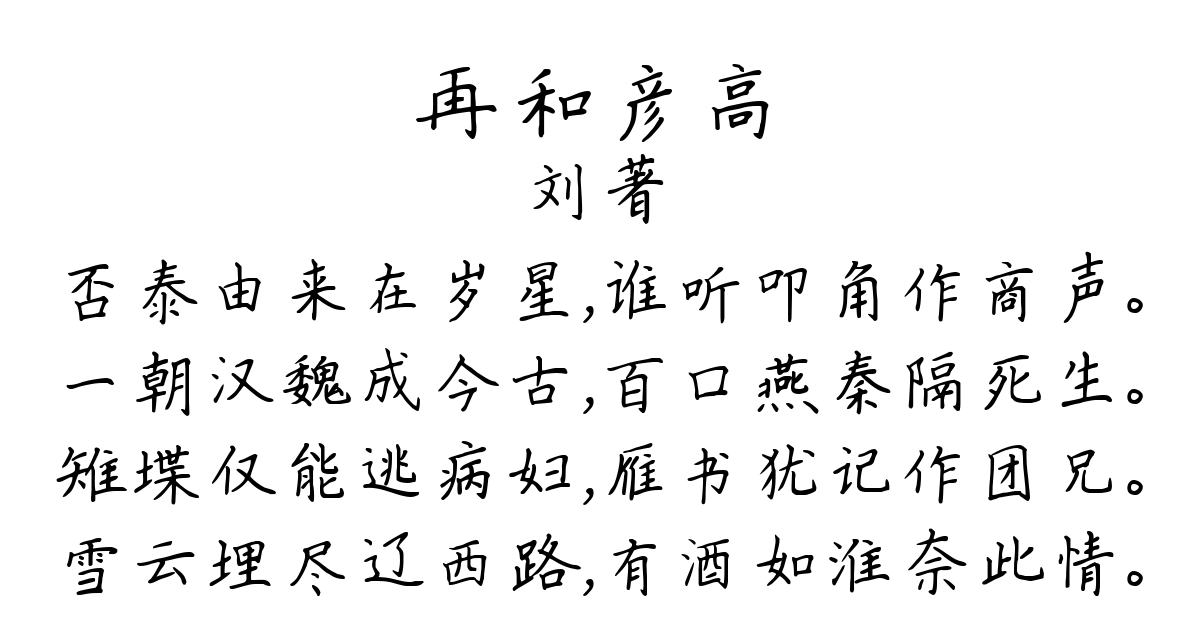 再和彦高
刘著
否泰由来在岁星,谁听叩角作商声。
一朝汉魏成今古,百口燕秦隔死生。
雉堞仅能逃病妇,雁书犹记作团兄。
雪云埋尽辽西路,有酒如淮奈此情。